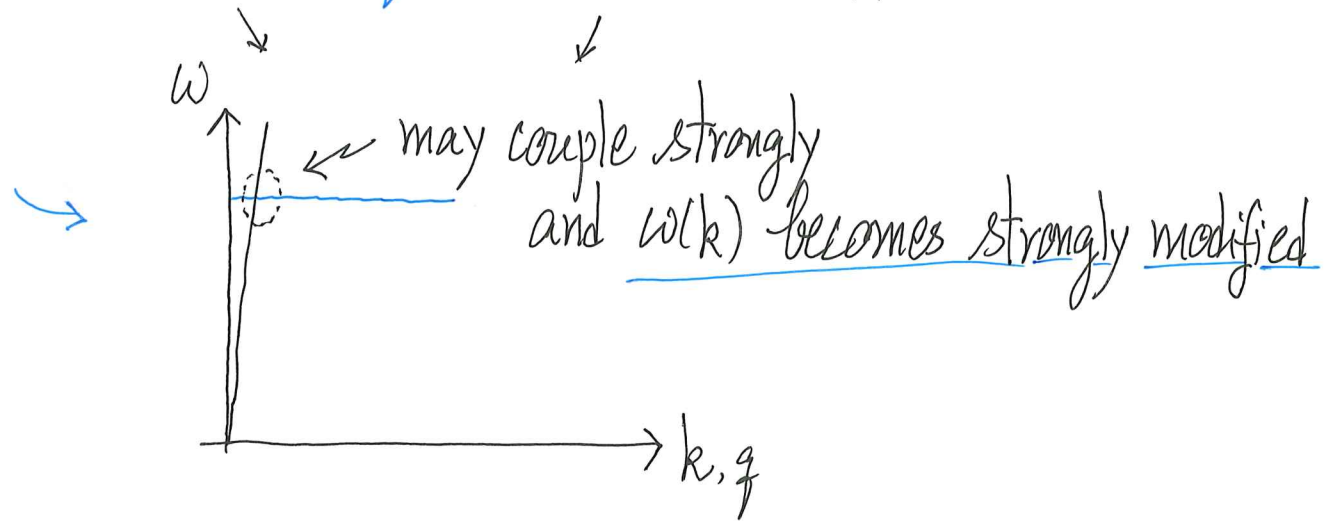 ω
may couple strongly
and ω(k) becomes strongly modified
k, q